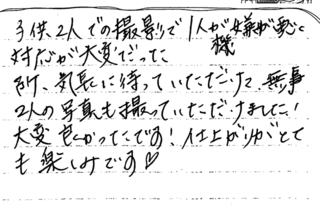 子供2人での撮影で1人が機嫌が悪く
対応が大変だった
所、気長に待っていただけて、無事
2人の写真も撮っていただけました!
大変良かったです!仕上がりがとて
も楽しみです♡